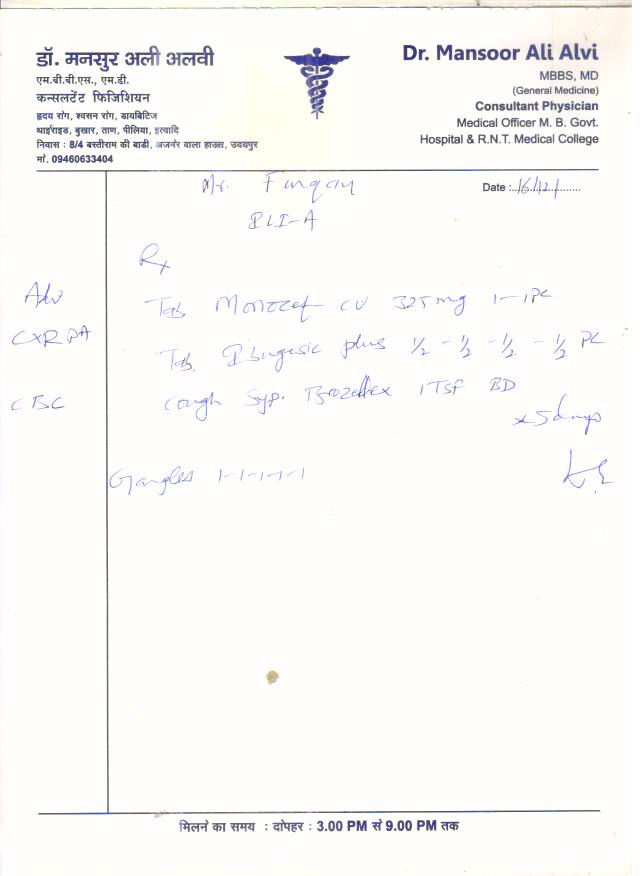 डॉ. मनसुर अली अलवी
एम.बी.बी.एस., एम.डी.
कन्सलटेंट फिजिशियन
हृदय रोग, श्वसन रोग, डायबिटिज
थाईराइड, बुखार, ताण, पीलिया, इत्यादि
निवास : 8/4 बस्तीराम की बाडी, अजमेर वाला हाऊस, उदयपुर
मो. 09460633404
Dr. Mansoor Ali Alvi
MBBS, MD
(General Medicine)
Consultant Physician
Medical Officer M. B. Govt.
Hospital & R.N.T. Medical College
Mr. Furqan
Date :..16/12/........
Rx
Adv
CXR PA
CBC
Tab Monocef CV 325mg 1-1 PC
Tab. Ibugesic plus 1/2 - 1/2 - 1/2 - 1/2 PC
Cough Syp. Brozedex 1 TSF BD
x 5 days
Gargles 1-1-1-1
मिलने का समय : दोपहर : 3.00 PM से 9.00 PM तक